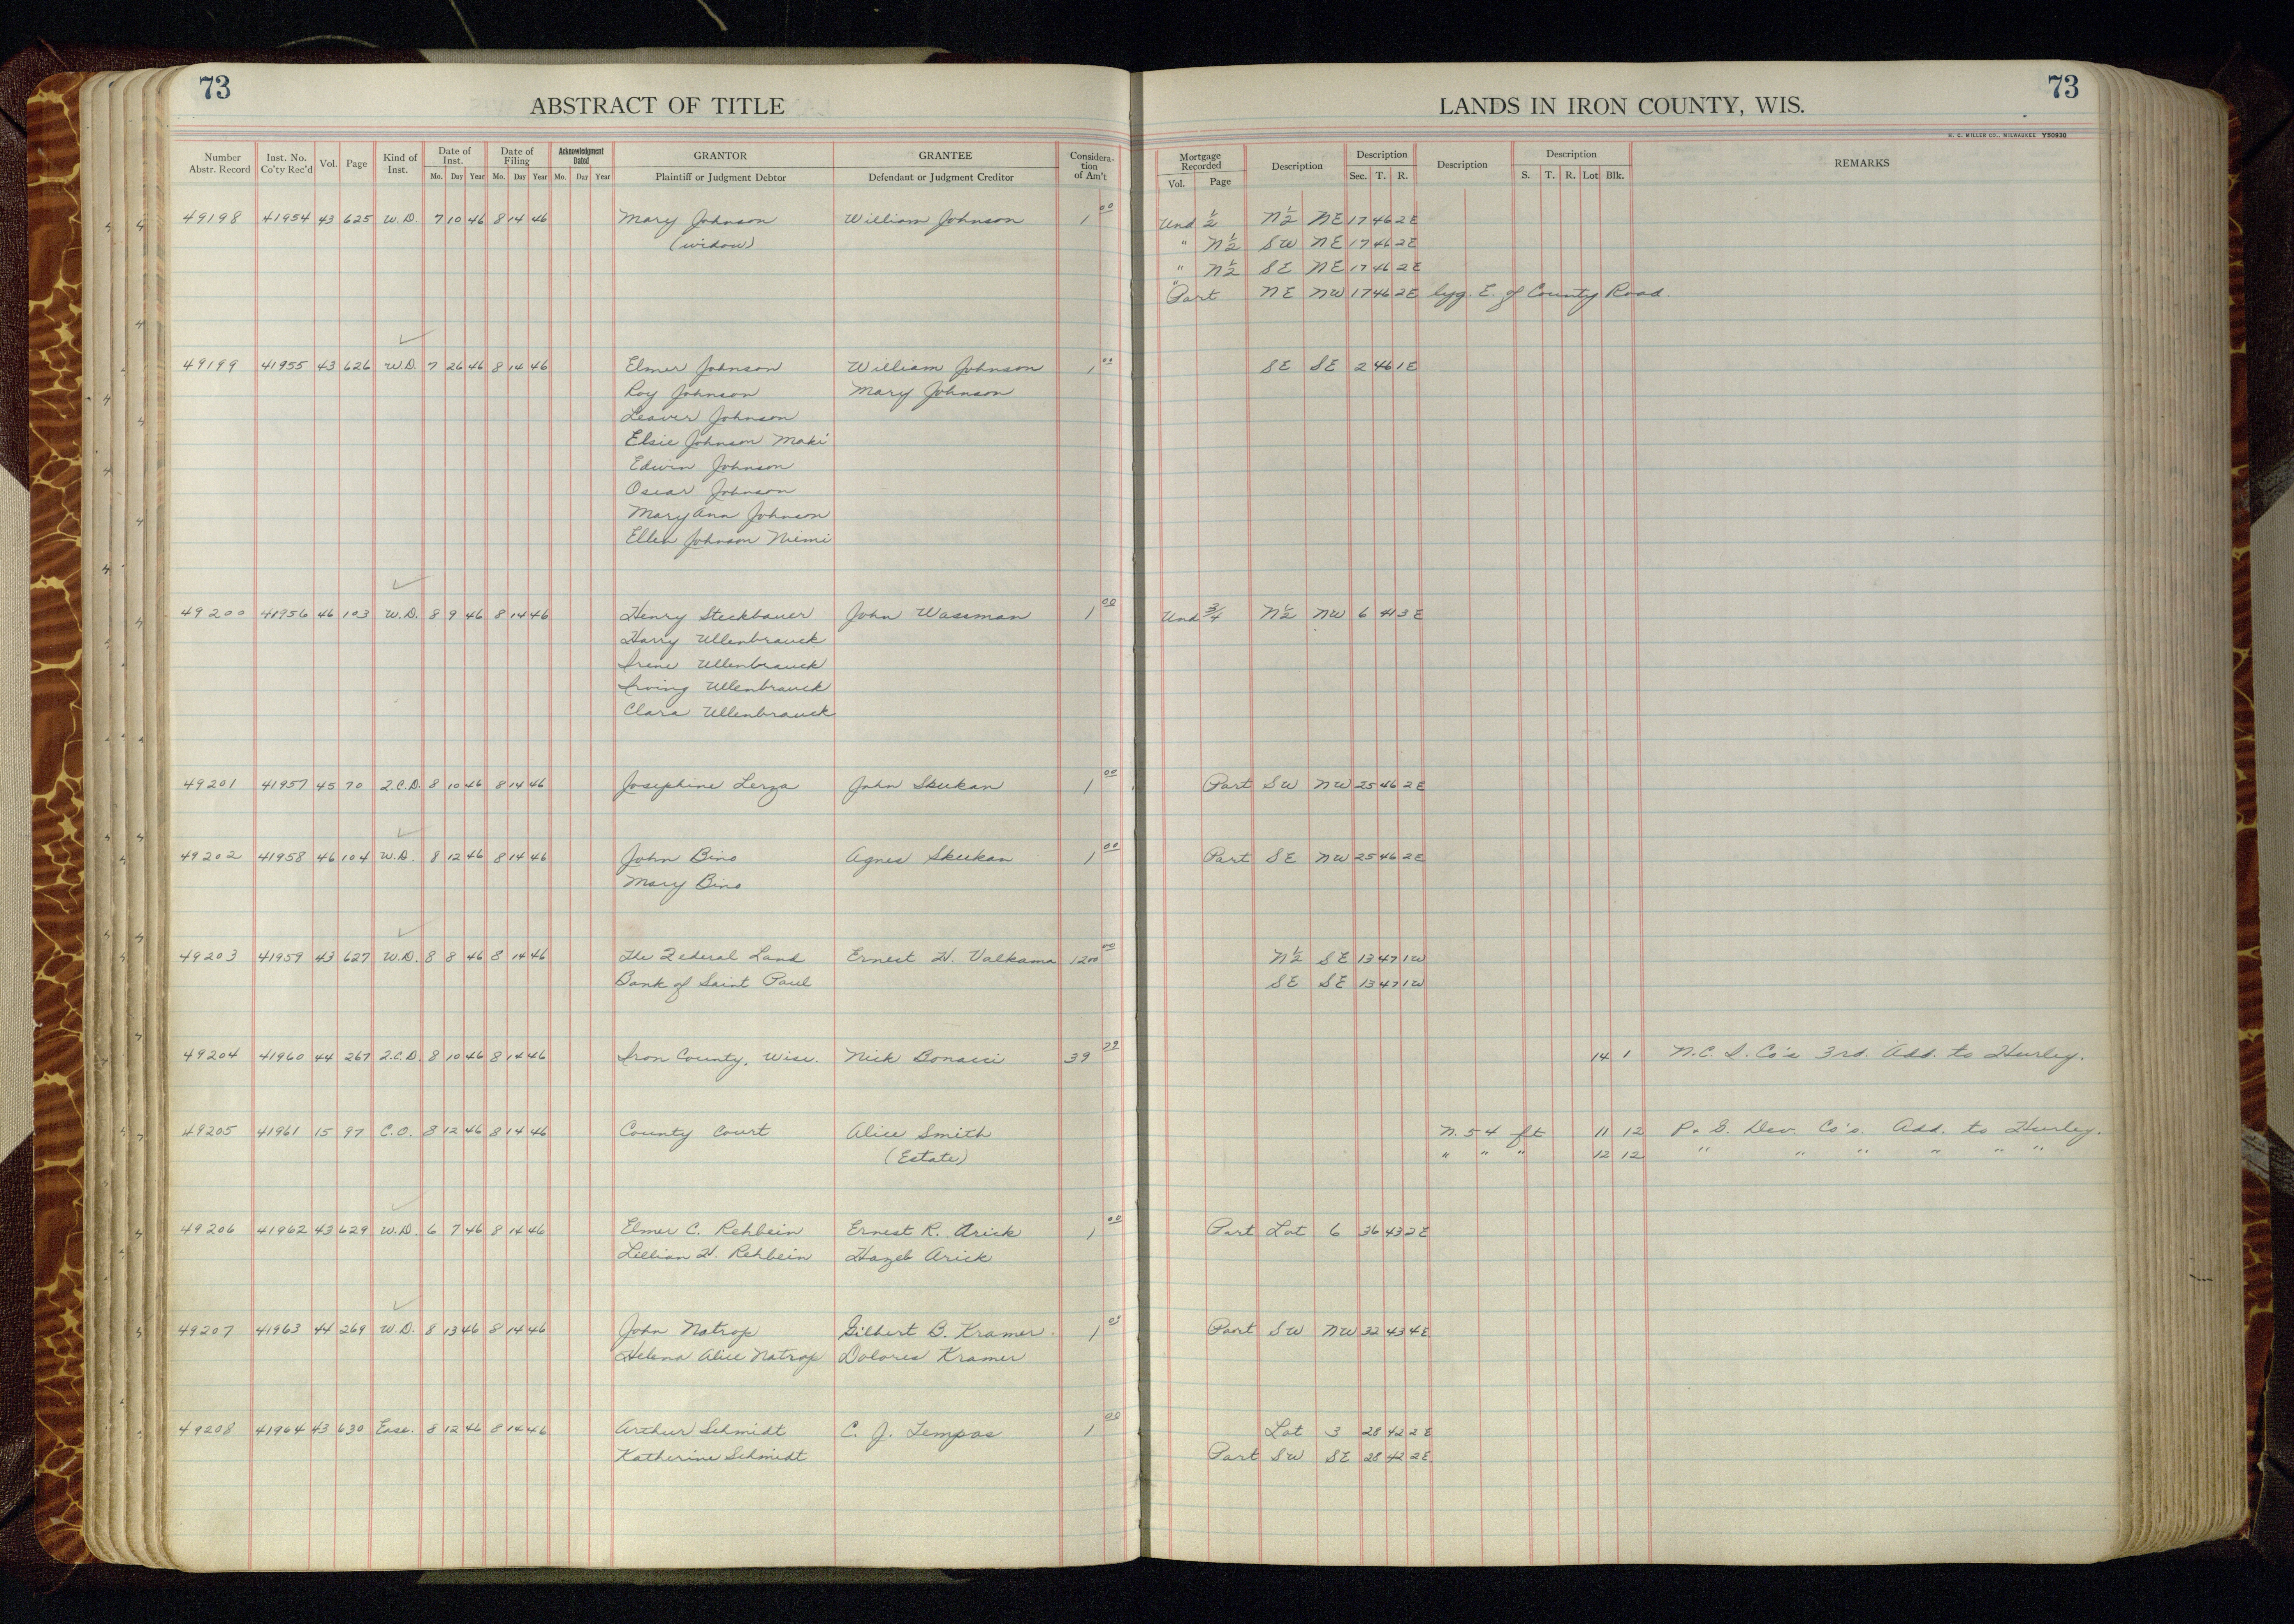 73
ABSTRACT OF TITLE
LANDS IN IRON COUNTY, WIS.
73
H. C. MILLER CO., MILWAUKEE Y50930
Number Abstr. Record Inst. No. Co'ty Rec'd Vol. Page Kind of Inst. Date of Inst. Mo. Day Year Date of Filing Mo. Day Year Acknowledgment Dated Mo. Day Year GRANTOR Plaintiff or Judgment Debtor GRANTEE Defendant or Judgment Creditor Considera- tion of Am't Mortgage Recorded Vol. Page Description Description Sec. T. R. Description Description S. T. R. Lot Blk. REMARKS
49198 41954 43 625 W.D. 7 10 46 8 14 46 Mary Johnson William Johnson 1 00 Und 1/2 N 1/2 NE 17 46 2E
(widow) " N 1/2 SW NE 17 46 2E
" N 1/2 SE NE 17 46 2E
" Part NE NW 17 46 2E lyg. E. of County Road.
49199 41955 43 626 W.D. 7 26 46 8 14 46 Elmer Johnson William Johnson 1 00 SE SE 2 46 1E
Roy Johnson Mary Johnson
Leaver Johnson
Elsie Johnson Maki
Edwin Johnson
Oscar Johnson
Mary Ann Johnson
Ellen Johnson Niemi
49200 41956 46 103 W.D. 8 9 46 8 14 46 Henry Steckbauer John Wassman 1 00 Und 3/4 N 1/2 NW 6 41 3E
Harry Ullenbrauck
Irene Ullenbrauck
Irving Ullenbrauck
Clara Ullenbrauck
49201 41957 45 70 Q.C.D. 8 10 46 8 14 46 Josephine Lerza John Skukan 1 00 Part SW NW 25 46 2E
49202 41958 46 104 W.D. 8 12 46 8 14 46 John Bino Agnes Skukan 1 00 Part SE NW 25 46 2E
Mary Bino
49203 41959 43 627 W.D. 8 8 46 8 14 46 The Federal Land Ernest H. Valkama 1200 00 N 1/2 SE 13 47 1W
Bank of Saint Paul SE SE 13 47 1W
49204 41960 44 267 Q.C.D. 8 10 46 8 14 46 Iron County, Wisc. Nick Bonacci 39 29 14 1 N.C. I. Co's 3rd. Add. to Hurley.
49205 41961 15 97 C.O. 8 12 46 8 14 46 County Court Alice Smith N. 54 ft 11 12 P. & G. Dev. Co's. Add. to Hurley.
(Estate) " " " 12 12 " " " " " "
49206 41962 43 629 W.D. 6 7 46 8 14 46 Elmer C. Rehbein Ernest R. Arick 1 00 Part Lot 6 36 43 2E
Lillian H. Rehbein Hazel Arick
49207 41963 44 269 W.D. 8 13 46 8 14 46 John Natrop Gilbert B. Kramer 1 00 Part SW NW 32 43 4E
Helena Alice Natrop Dolores Kramer
49208 41964 43 630 Ease. 8 12 46 8 14 46 Arthur Schmidt C. J. Tempas 1 00 Lot 3 28 42 2E
Katherine Schmidt Part SW SE 28 42 2E